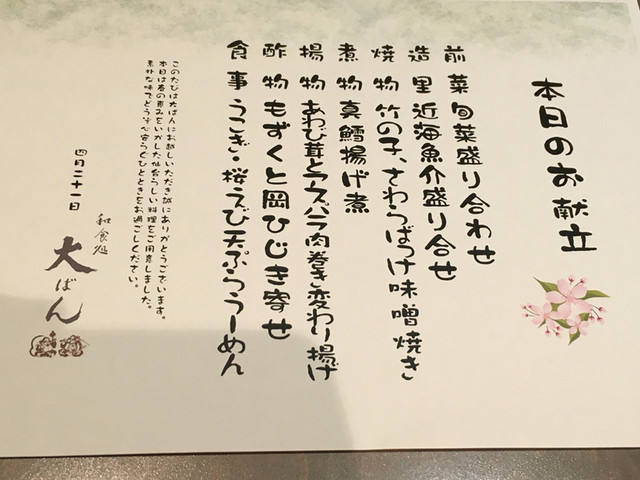 本日のお献立
前菜 旬菜盛り合わせ
造里 近海魚介盛り合せ
焼物 竹の子、さわらばっけ味噌焼き
煮物 真鱈揚げ煮
揚物 あわび茸とアスパラ肉巻き変わり揚げ
酢物 もずくと岡ひじき寄せ
食事 うこぎ・桜えび天ぷらうーめん
このたびは大ばんにお越しいただき誠にありがとうございます。
本日は春の恵みをいかした仙台らしい料理をご用意しました。
素朴な味でどうぞ心安らぐひとときをお過ごしください。
四月二十一日
和食処
大ばん